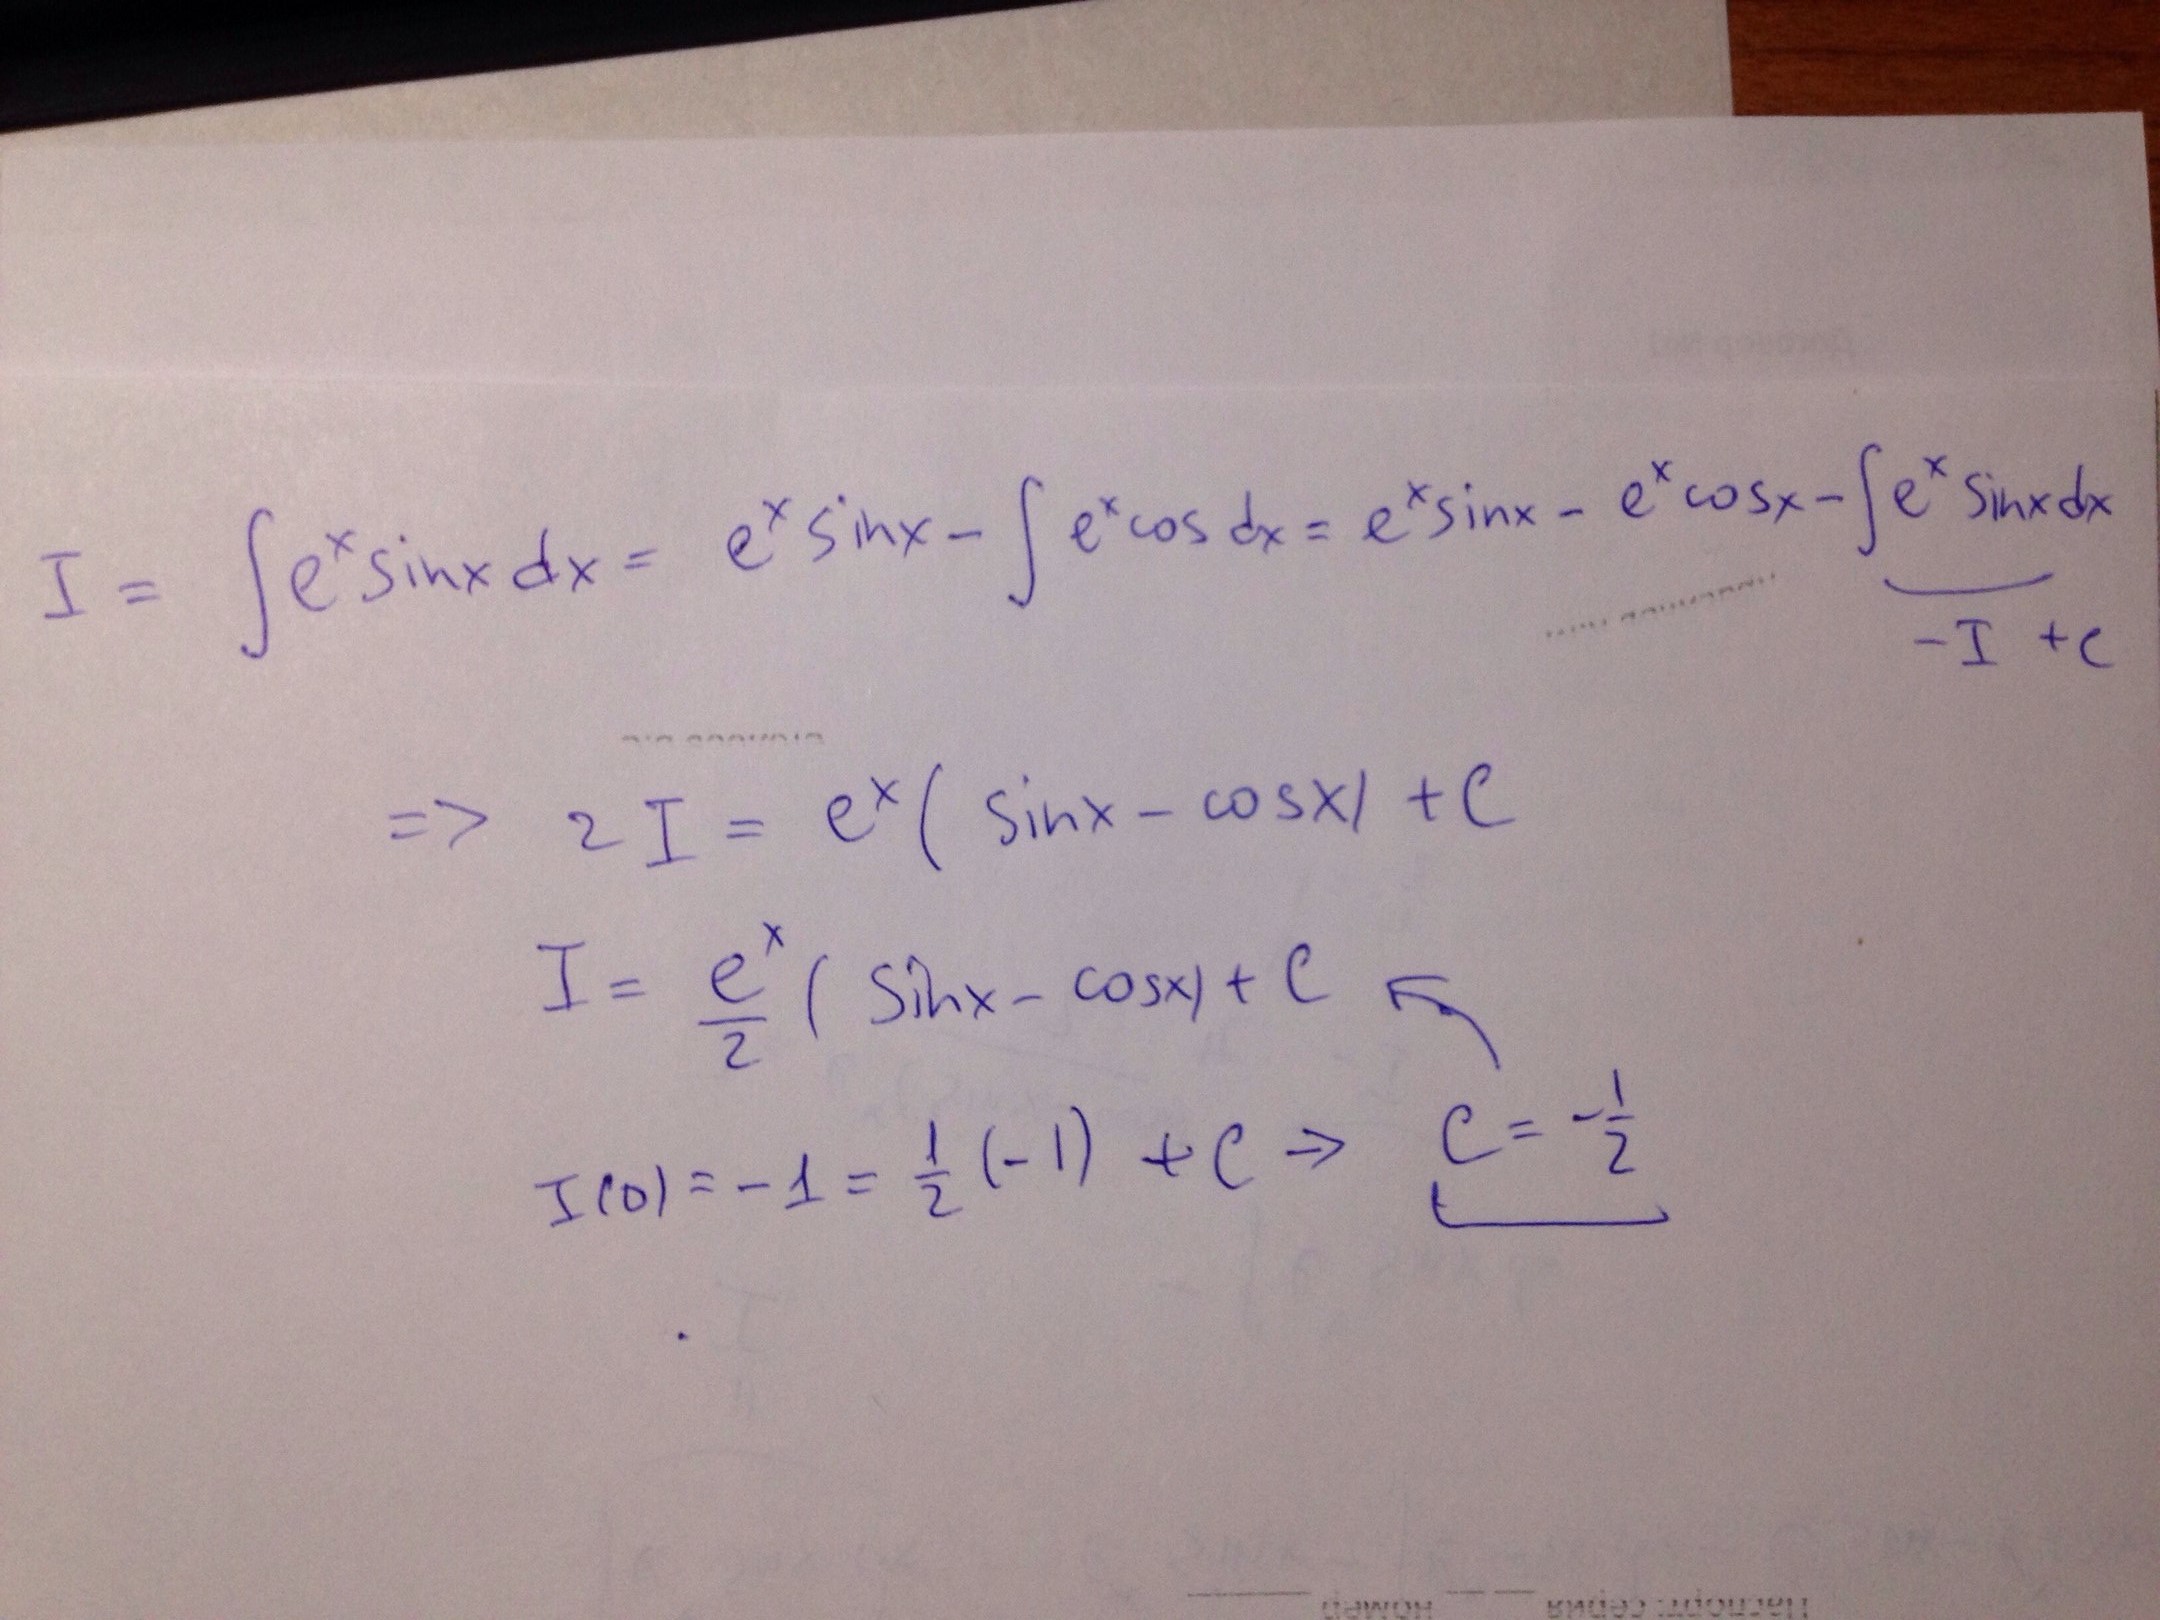 I = ∫e^x sinx dx = e^x sinx - ∫ e^x cos dx = e^x sinx - e^x cosx - ∫e^x sinx dx
-I + C
=> 2 I = e^x ( sinx - cosx) + C
I = e^x/2 ( sinx - cosx) + C
I(0) = -1 = 1/2 (-1) + C => C = -1/2